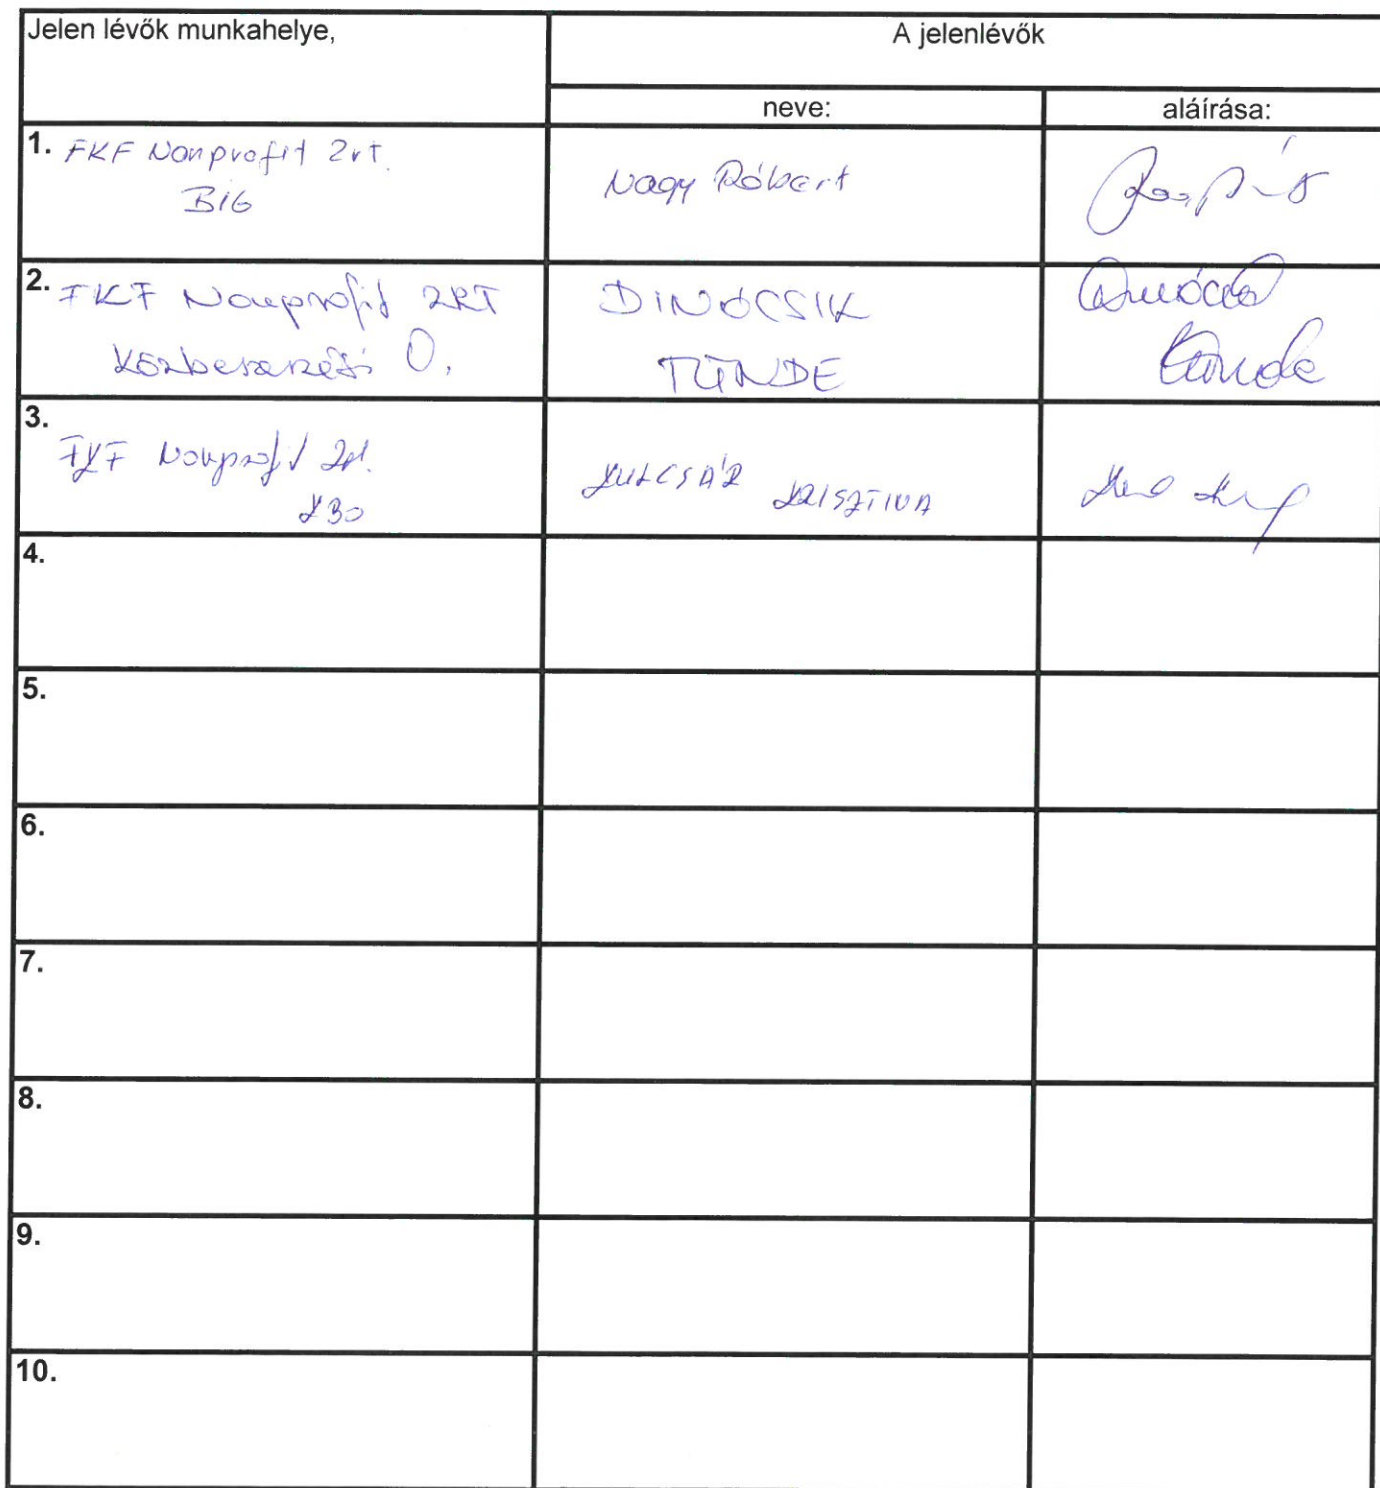 Jelen lévők munkahelye,
A jelenlévők
neve:
aláírása:
1. FKF Nonprofit Zrt.
BIG
Nagy Róbert
2. FKF Nonprofit ZRT
Közbeszerzési O.
DINÓCSIK
TÜNDE
3.
FKF Nonprofit Zrt.
KBO
KULCSÁR KRISZTINA
4.
5.
6.
7.
8.
9.
10.